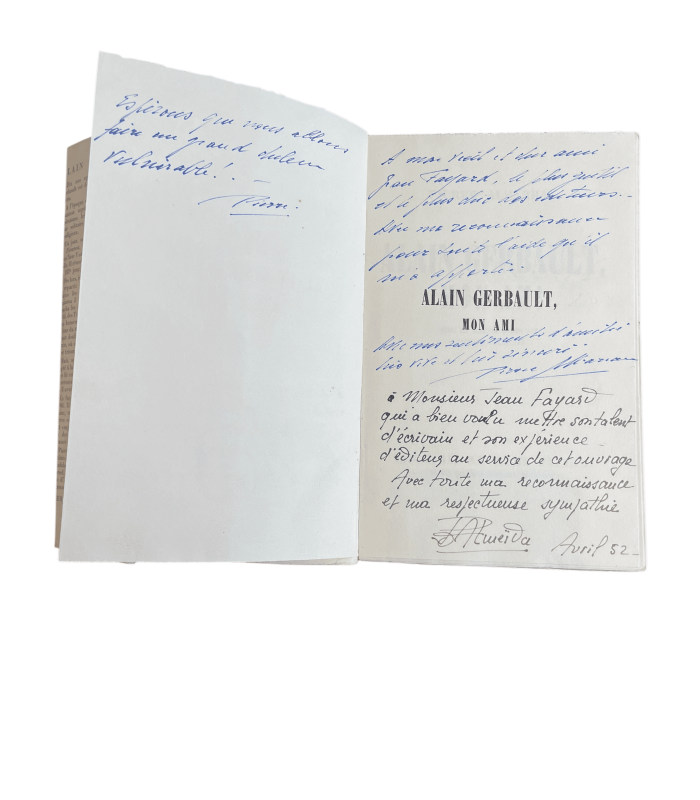 Espérons que nous allons
faire un grand
vulnérable! -
Pierre
A mon vieil et cher ami
Jean Fayard, le plus gentil
et le plus chic des éditeurs -
Avec ma reconnaissance
pour toute l'aide qu'il
m'a apportée.
ALAIN GERBAULT,
MON AMI
Avec mes sentiments d'amitié
très vive et très sincère..
Pierre
à Monsieur Jean Fayard
qui a bien voulu mettre son talent
d'écrivain et son expérience
d'éditeur au service de cet ouvrage
Avec toute ma reconnaissance
et ma respectueuse sympathie
Almeïda
Avril 52 -